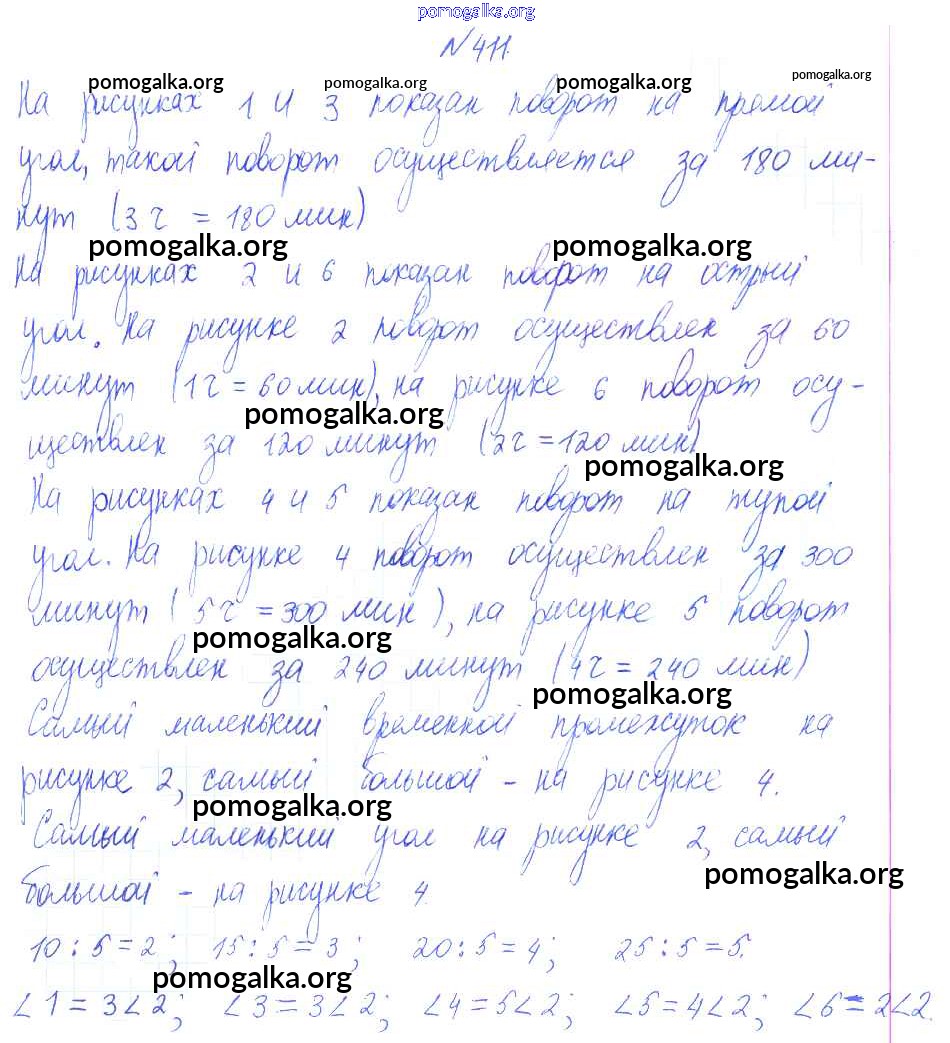 pomogalka.org
№ 411.
pomogalka.org pomogalka.org pomogalka.org pomogalka.org
На рисунках 1 и 3 показан поворот на прямой
угол, такой поворот осуществляется за 180 ми-
нут (3 ч = 180 мин)
pomogalka.org pomogalka.org
На рисунках 2 и 6 показан поворот на острый
угол. На рисунке 2 поворот осуществлен за 60
минут (1 ч = 60 мин), на рисунке 6 поворот осу-
pomogalka.org
ществлен за 120 минут (2 ч = 120 мин)
pomogalka.org
На рисунках 4 и 5 показан поворот на тупой
угол. На рисунке 4 поворот осуществлен за 300
минут ( 5 ч = 300 мин ), на рисунке 5 поворот
pomogalka.org
осуществлен за 240 минут (4 ч = 240 мин)
pomogalka.org
Самый маленький временной промежуток на
рисунке 2, самый большой - на рисунке 4.
pomogalka.org
Самый маленький угол на рисунке 2, самый
pomogalka.org
большой - на рисунке 4.
10 : 5 = 2 ; 15 : 5 = 3 ; 20 : 5 = 4 ; 25 : 5 = 5.
pomogalka.org
∠1 = 3∠2 ; ∠3 = 3∠2 ; ∠4 = 5∠2 ; ∠5 = 4∠2 ; ∠6 = 2∠2.